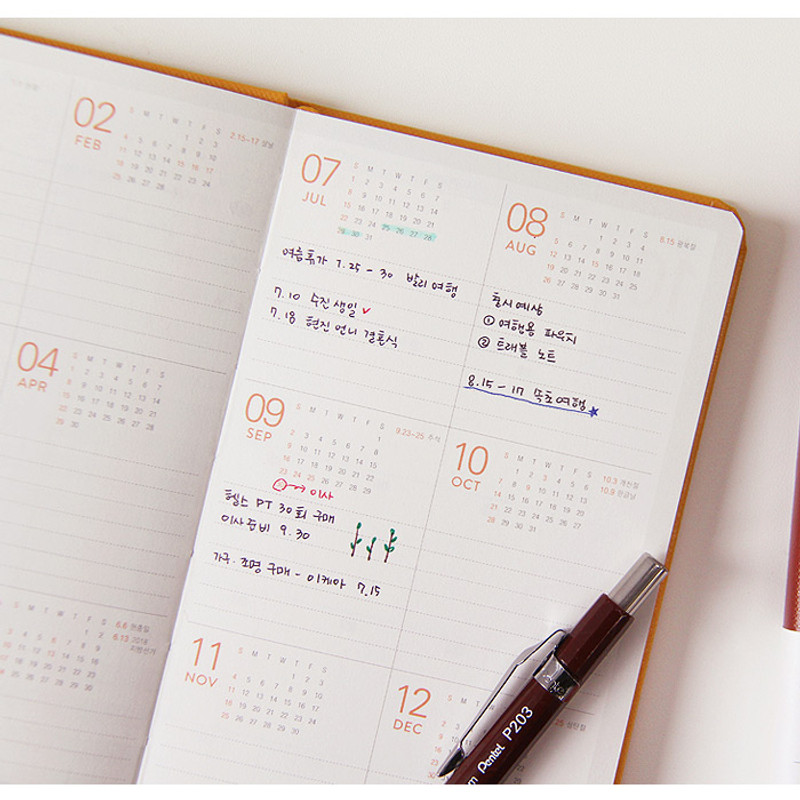 02
FEB
S M T W T F S
1 2 3
4 5 6 7 8 9 10
11 12 13 14 15 16 17
18 19 20 21 22 23 24
25 26 27 28
2.15-17 설날
04
APR
S M T W T F S
1 2 3 4 5 6 7
8 9 10 11 12 13 14
15 16 17 18 19 20 21
22 23 24 25 26 27 28
29 30
6.6 현충일
6.13 2018
지방선거
07
JUL
S M T W T F S
1 2 3 4 5 6 7
8 9 10 11 12 13 14
15 16 17 18 19 20 21
22 23 24 25 26 27 28
29 30 31
여름휴가 7.25 - 30 발리 여행
7.10 수진 생일
7.18 현진 언니 결혼식
08
AUG
S M T W T F S
1 2 3 4
5 6 7 8 9 10 11
12 13 14 15 16 17 18
19 20 21 22 23 24 25
26 27 28 29 30 31
8.15 광복절
출시예상
① 여행용 파우치
② 트래블 노트
8.15 - 17 속초여행
09
SEP
S M T W T F S
1
2 3 4 5 6 7 8
9 10 11 12 13 14 15
16 17 18 19 20 21 22
23 24 25 26 27 28 29
9.23-25 추석
이사
헬스 PT 30회 구매
이사준비 9.30
가구·조명 구매 - 이케아 7.15
10
OCT
S M T W T F S
1 2 3 4 5 6
7 8 9 10 11 12 13
14 15 16 17 18 19 20
21 22 23 24 25 26 27
28 29 30 31
10.3 개천절
10.9 한글날
11
NOV
S M T W T F S
1 2 3
4 5 6 7 8 9 10
11 12 13 14 15 16 17
18 19 20 21 22 23 24
25 26 27 28 29 30
12
DEC
Pentel P203